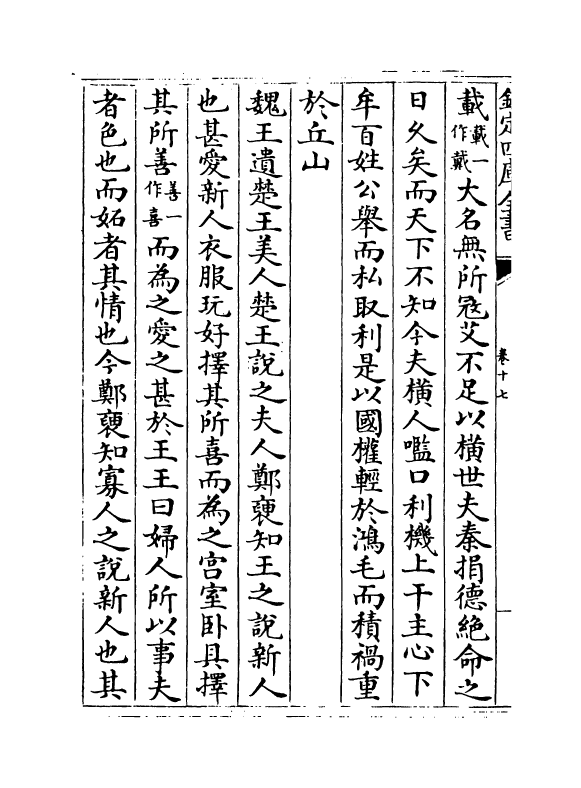 欽定四庫全書
卷十七
載載一作戴大名無所寇艾不足以橫世夫秦捐德絶命之
日乆矣而天下不知今夫橫人嚂口利機上干主心下
牟百姓公舉而私取利是以國權輕於鴻毛而積禍重
於丘山
魏王遺楚王美人楚王說之夫人鄭䙝知王之說新人
也甚愛新人衣服玩好擇其所喜而為之宫室卧具擇
其所善善一作喜而為之愛之甚於王王曰婦人所以事夫
者色也而妬者其情也今鄭䙝知寡人之說新人也其